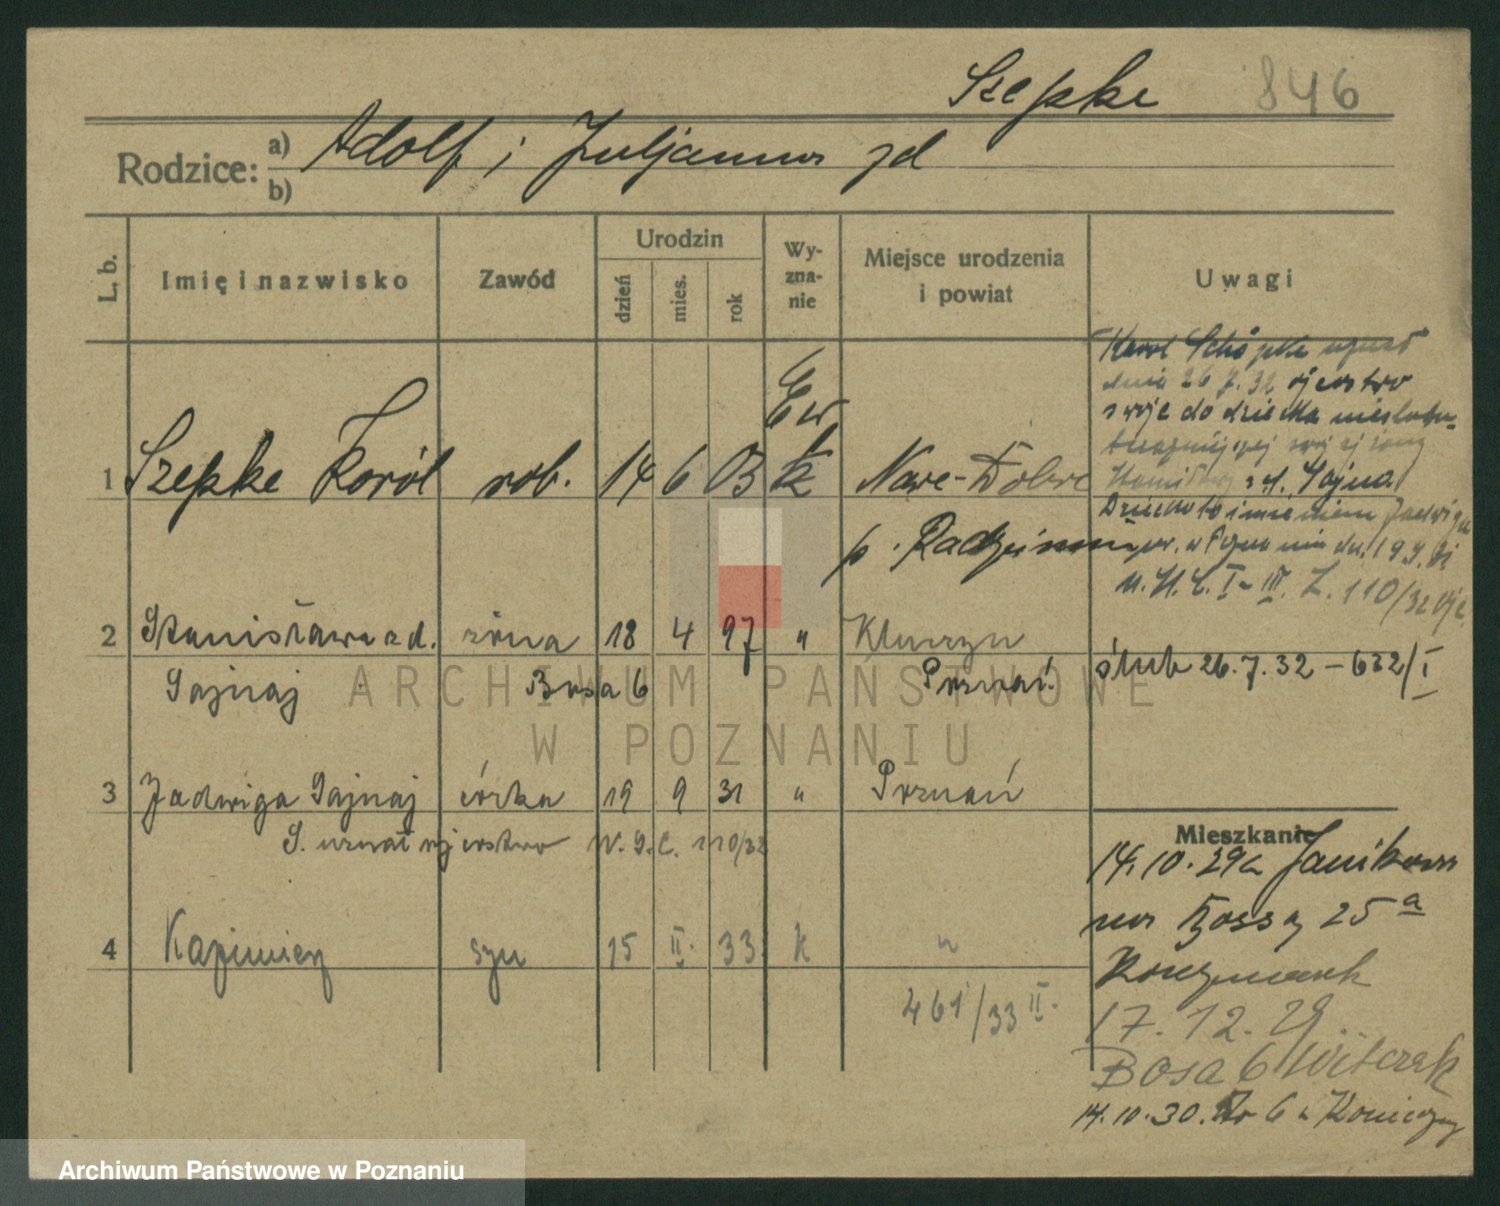 Szepke 846
Rodzice: a) Adolf i Juljanna zd
b)
L. b. Imię i nazwisko Zawód Urodzin dzień mies. rok Wyznanie Miejsce urodzenia i powiat Uwagi
Karol Schöpke uznał
dnia 26.7.32 ojcostwo
swoje do dziecka
swojej żony
zd. Gajna
Dziecko to imieniem Jadwiga
ur. w Poznaniu dn. 19.9.31
U. S. C. I - III. L. 110/32
Ew
1 Szepke Karól rob. 14 6 03 k Nowe-Dobre
p.
2 Stanisława zd. żona 18 4 97 " Poznań
Gajnaj Bosa 6
ślub 26.7.32 - 622/I
3 Jadwiga Gajnaj córka 19 9 31 " Poznań
S. uznał ojcostwo U.S.C. 110/32
Mieszkanie
14.10.29
25 a
4 Kazimierz syn 15 II. 33 k "
461/33 II.
17.12.29
Bosa 6 Witczak
14.10.30. 6
ARCHIWUM PAŃSTWOWE
W POZNANIU
Archiwum Państwowe w Poznaniu